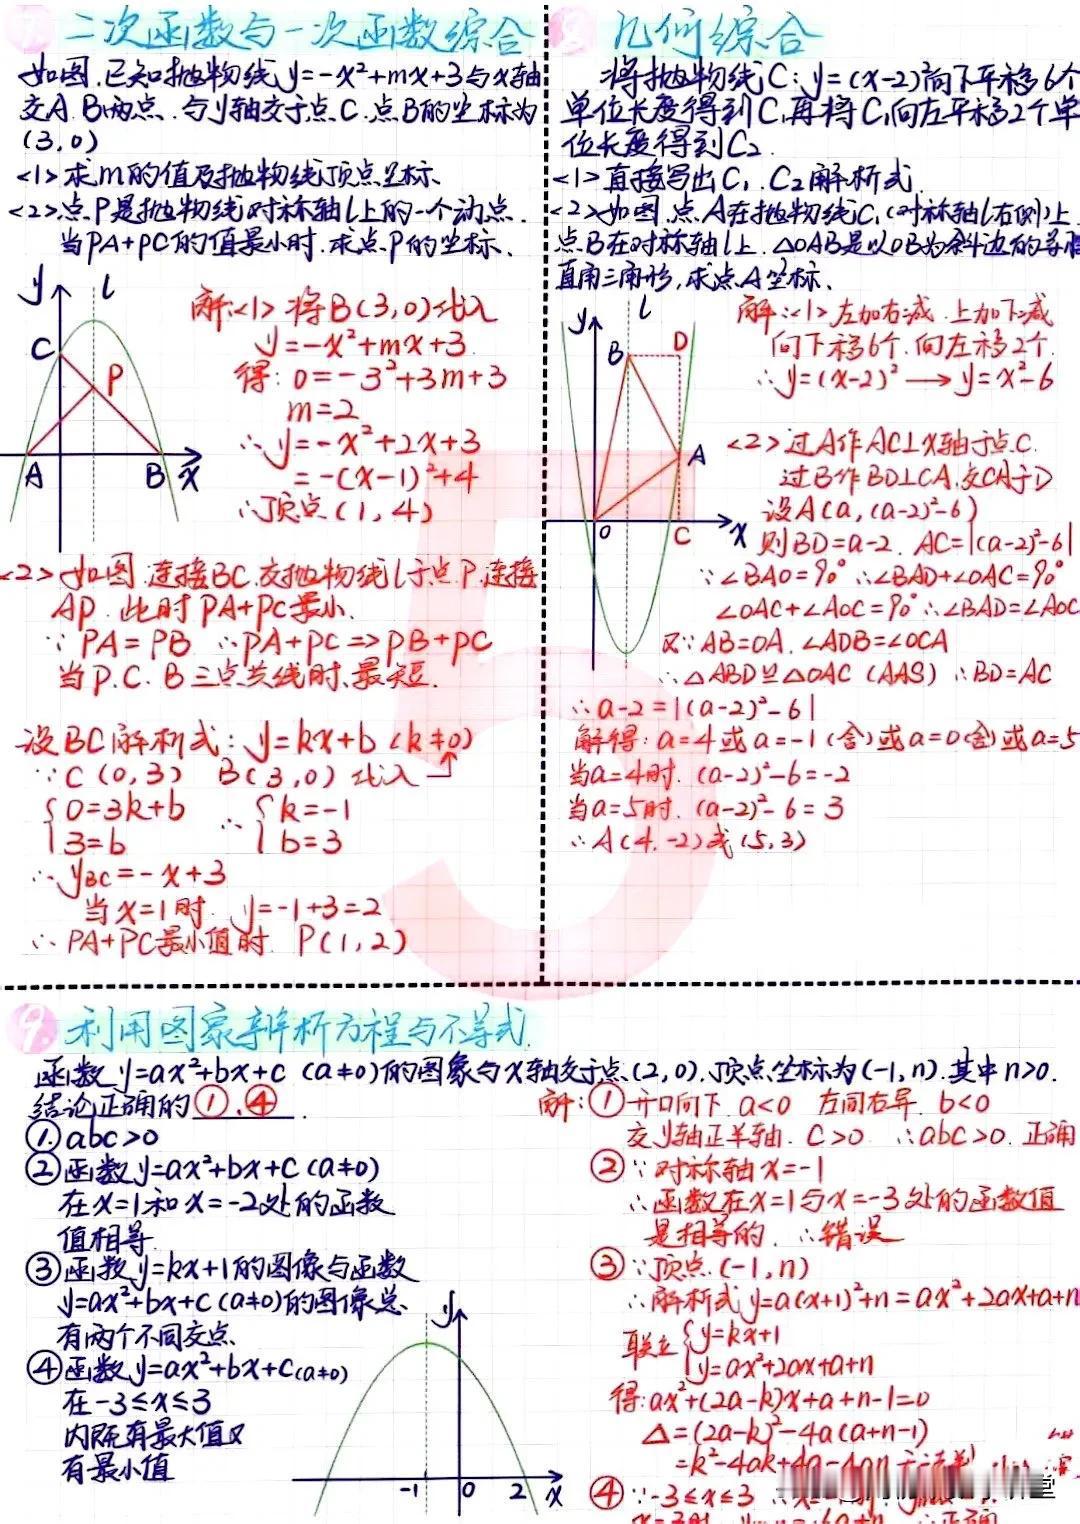 7. 二次函数与一次函数综合
如图.已知抛物线y=-x²+mx+3与x轴
交A.B两点.与y轴交于点C.点B的坐标为
(3,0)
<1>求m的值及抛物线顶点坐标、
<2>点P是抛物线对称轴l上的一个动点.
当PA+PC的值最小时.求点P的坐标、
y
l
C
P
A
B
x
解:<1>将B(3,0)代入
y=-x²+mx+3
得:0=-3²+3m+3
m=2
∴y=-x²+2x+3
=-(x-1)²+4
∴顶点(1,4)
<2>如图.连接BC.交抛物线l于点P.连接
AP.此时PA+PC最小.
∵PA=PB ∴PA+PC=>PB+PC
当P.C.B三点共线时.最短.
设BC解析式:y=kx+b(k≠0)
∵C(0,3) B(3,0)代入
{0=3k+b ∴{k=-1
{3=b {b=3
∴yBC=-x+3
当x=1时.y=-1+3=2
∴PA+PC最小值时.P(1,2)
8. 几何综合
将抛物线C:y=(x-2)²向下平移6个
单位长度得到C₁再将C₁向左平移2个单
位长度得到C₂.
<1>直接写出C₁.C₂解析式.
<2>如图.点A在抛物线C₁(对称轴l右侧)上.
点B在对称轴l上.△OAB是以OB为斜边的等腰
直角三角形,求点A坐标、
y
l
B
D
A
O
C
x
解:<1>左加右减.上加下减
向下移6个.向左移2个.
∴y=(x-2)²→y=x²-6
<2>过A作AC⊥x轴于点C.
过B作BD⊥CA.交CA于D
设A(a,(a-2)²-6)
则BD=a-2.AC=|(a-2)²-6|
∵∠BAO=90°∴∠BAD+∠OAC=90°
∠OAC+∠AOC=90°∴∠BAD=∠AOC
又∵AB=OA.∠ADB=∠OCA
∴△ABD≌△OAC(AAS)∴BD=AC
∴a-2=|(a-2)²-6|
解得:a=4或a=-1(舍)或a=0(舍)或a=5
当a=4时.(a-2)²-6=-2
当a=5时.(a-2)²-6=3
∴A(4,-2)或(5,3)
9. 利用图象辨析方程与不等式.
函数y=ax²+bx+c(a≠0)的图象与x轴交于点(2,0).顶点坐标为(-1,n).其中n>0.
结论正确的①.④.
①.abc>0
②函数y=ax²+bx+c(a≠0)
在x=1和x=-2处的函数
值相等.
③函数y=kx+1的图像与函数
y=ax²+bx+c(a≠0)的图像总
有两个不同交点.
④函数y=ax²+bx+c(a≠0)
在-3≤x≤3
内既有最大值又
有最小值
y
-1
0
2
x
解:①开口向下.a<0 左同右异.b<0
交y轴正半轴.C>0 ∴abc>0.正确
②∵对称轴x=-1
∴函数在x=1与x=-3处的函数值
是相等的.∴错误
③∵顶点(-1,n)
∴解析式y=a(x+1)²+n=ax²+2ax+a+n
联立{y=kx+1
{y=ax²+2ax+a+n
得:ax²+(2a-k)x+a+n-1=0
△=(2a-k)²-4a(a+n-1)
=k²-4ak+4a-4an
④∵-3≤x≤3